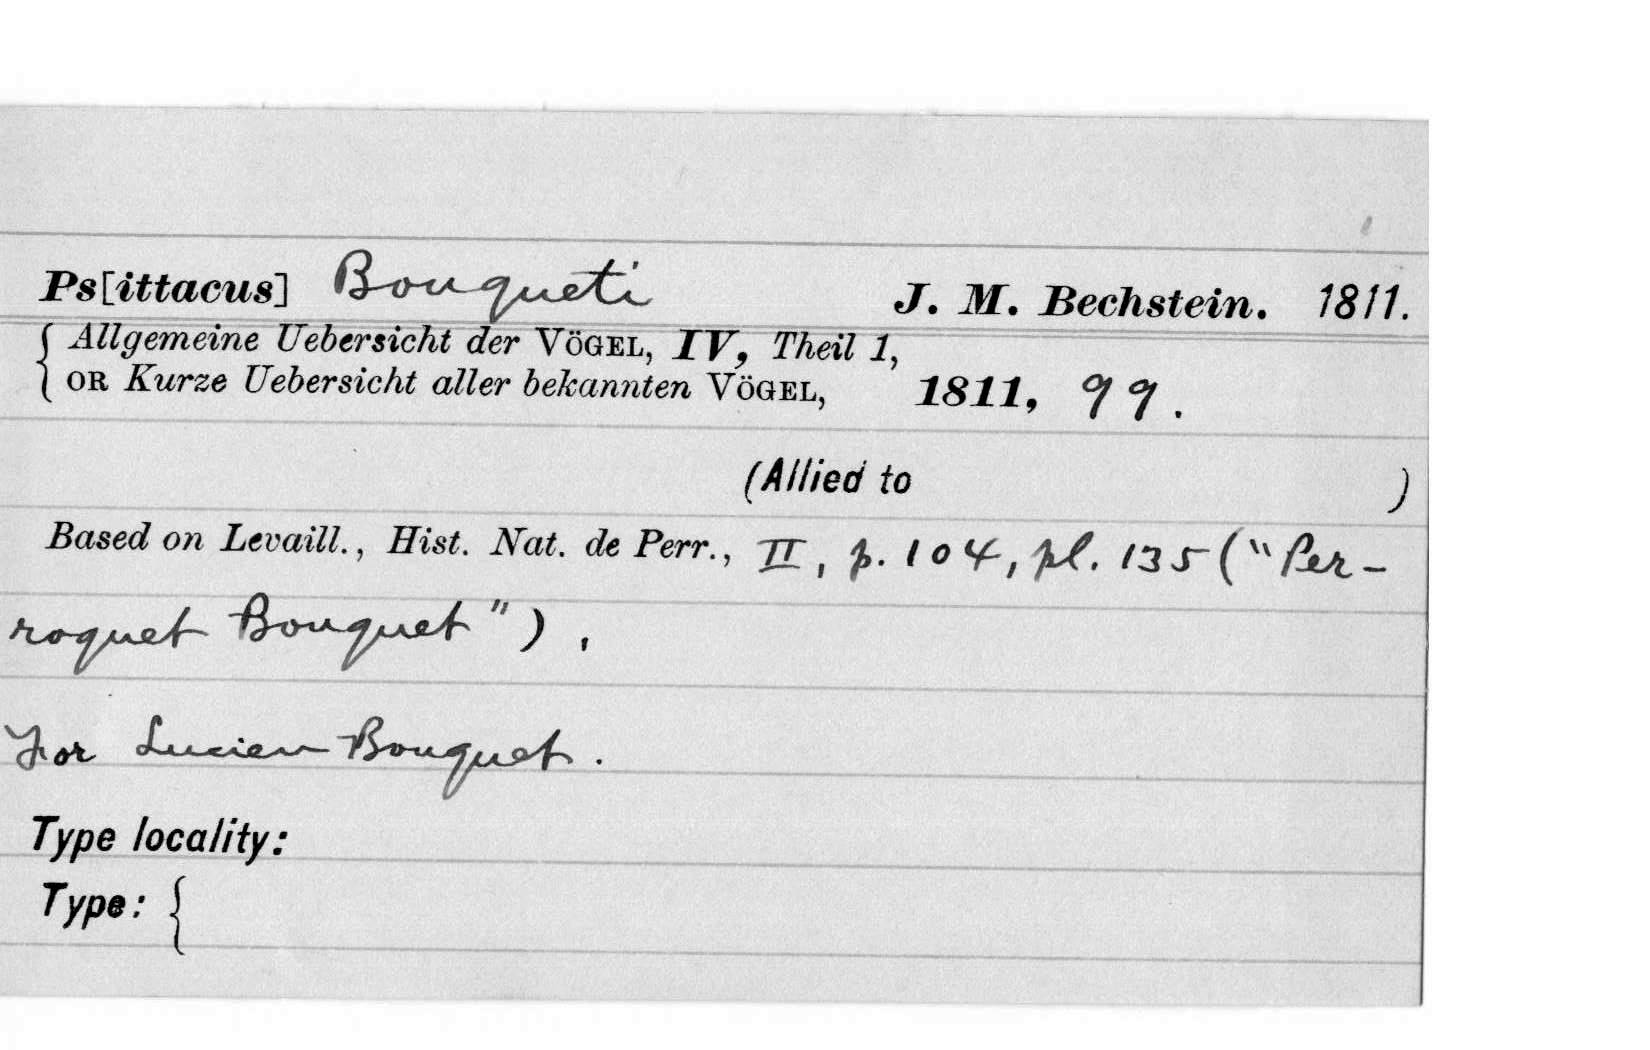 Ps[ittacus] Bouqueti J. M. Bechstein. 1811.
{ Allgemeine Uebersicht der VÖGEL, IV, Theil 1,
OR Kurze Uebersicht aller bekannten VÖGEL, 1811, 99.
(Allied to )
Based on Levaill., Hist. Nat. de Perr., II, p. 104, pl. 135 ("Per-
roquet Bouquet").
For Lucien Bouquet.
Type locality:
Type: {